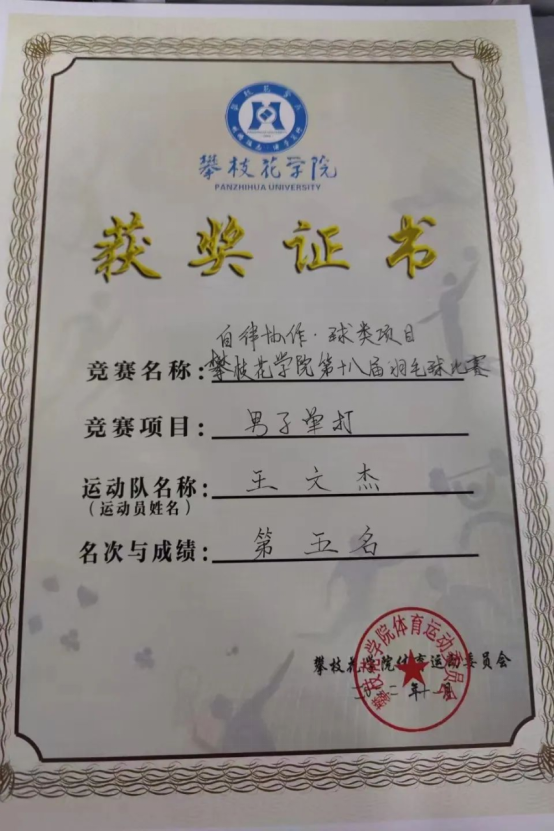 攀枝花学院
PANZHIHUA UNIVERSITY
获奖证书
自律协作·球类项目
竞赛名称:攀枝花学院第十八届羽毛球比赛
竞赛项目:男子单打
运动队名称:王文杰
(运动员姓名)
名次与成绩:第五名
攀枝花学院体育运动委员会
攀枝花学院体育运动委员会